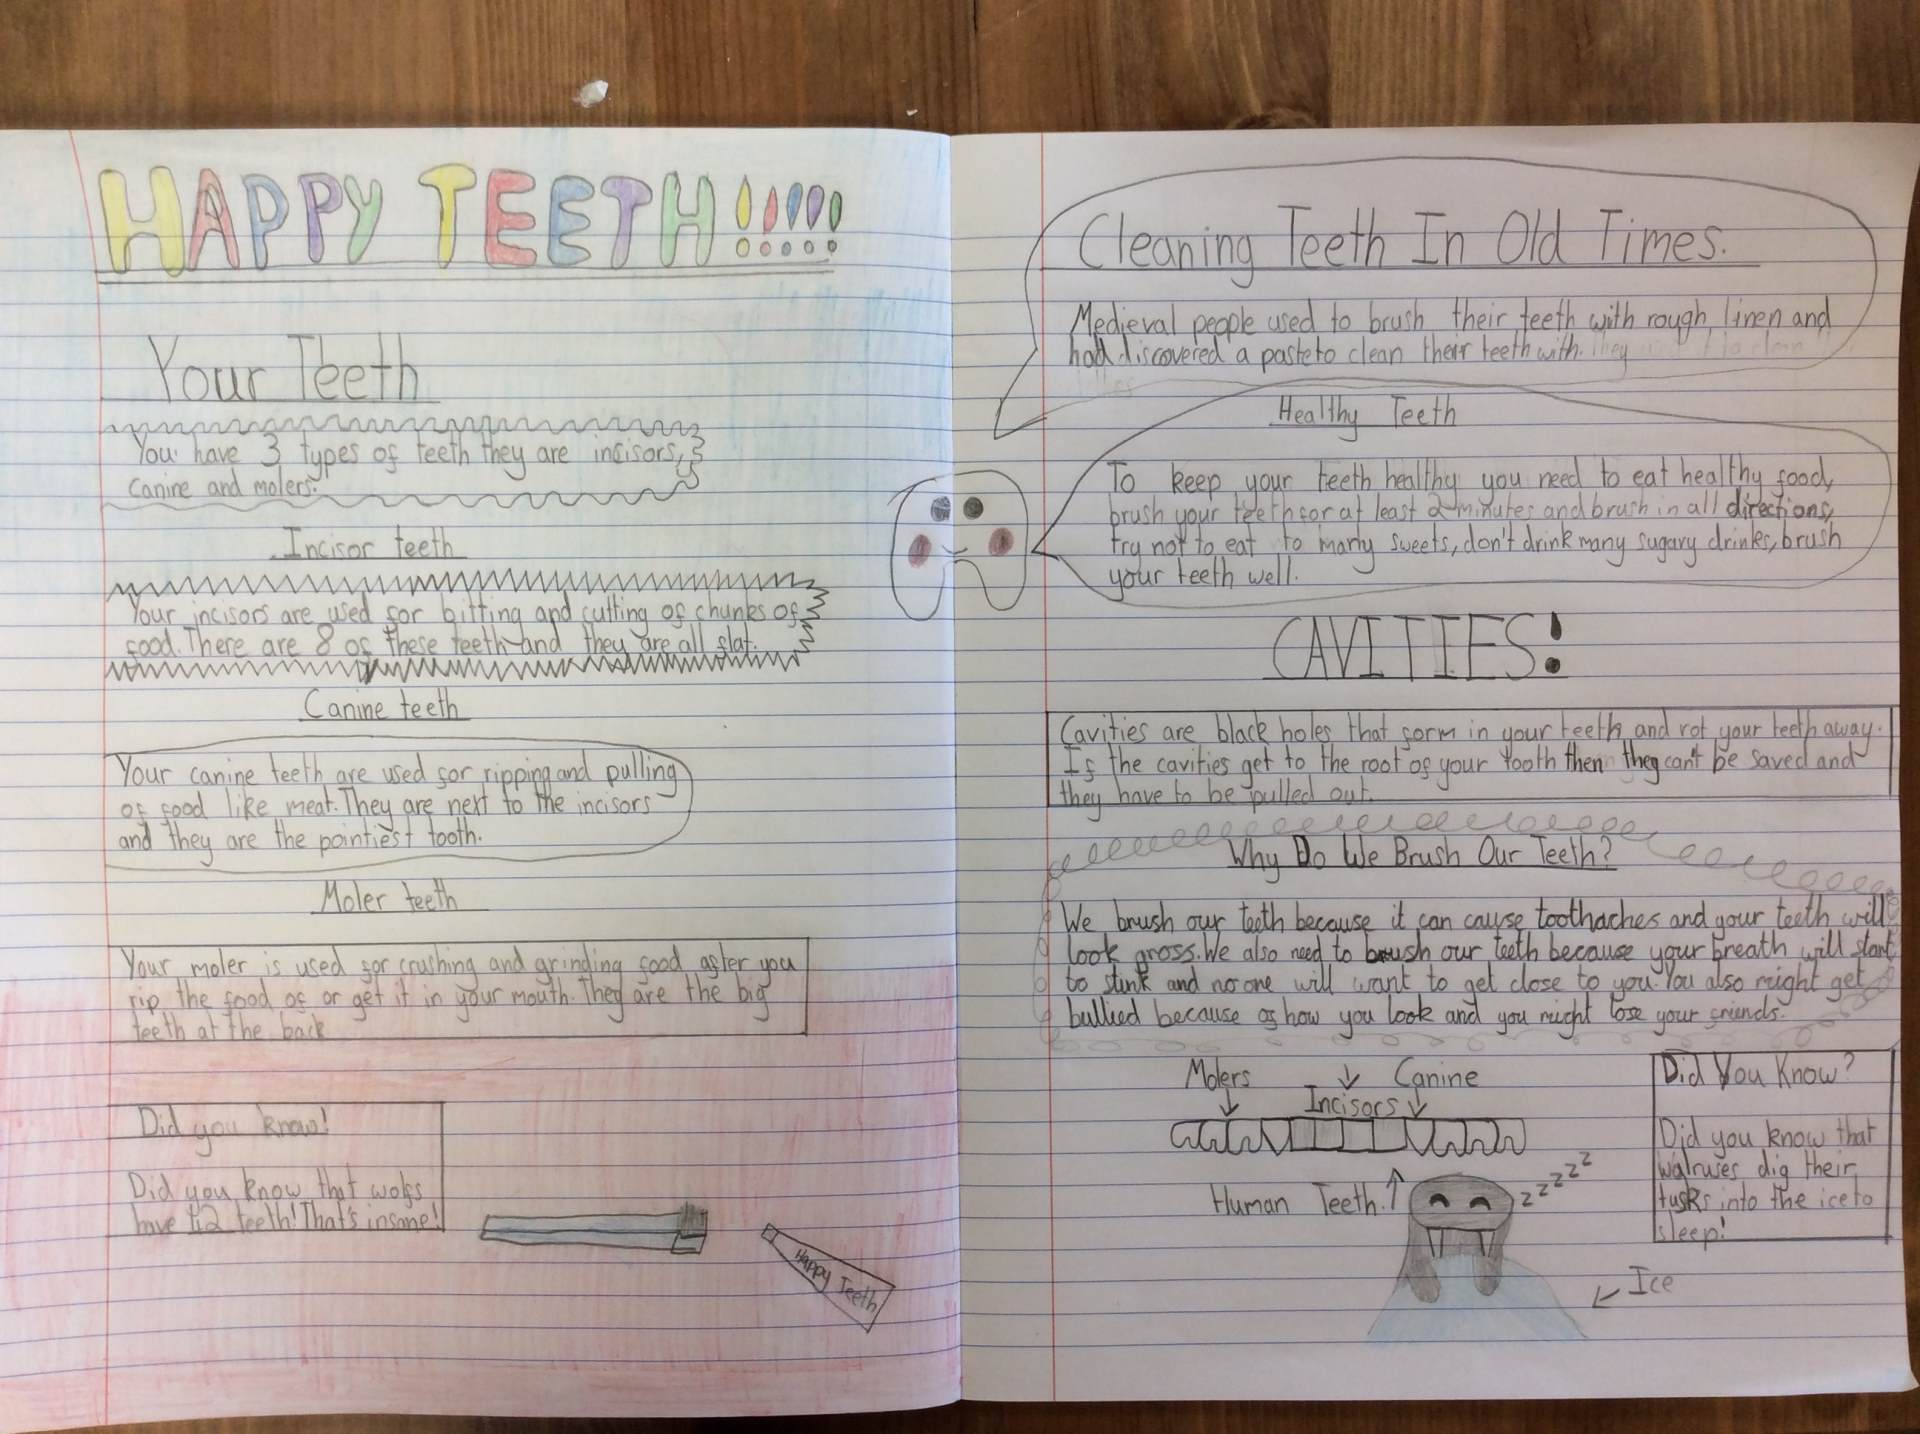 HAPPY TEETH!!!!!
Your Teeth
You have 3 types of teeth they are incisors,
canine and molers.
Incisor teeth
Your incisors are used for bitting and cutting of chunks of
food. There are 8 of these teeth and they are all flat.
Canine teeth
Your canine teeth are used for ripping and pulling
of food like meat. They are next to the incisors
and they are the pointiest tooth.
Moler teeth
Your moler is used for crushing and grinding food after you
rip the food of or get it in your mouth. They are the big
teeth at the back
Did you know!
Did you know that wolfs
have 42 teeth! That's insane!
Happy Teeth
Cleaning Teeth In Old Times.
Medieval people used to brush their teeth with rough linen and
had discovered a paste to clean their teeth with. They
Healthy Teeth
To keep your teeth healthy you need to eat healthy food,
brush your teeth for at least 2 minutes and brush in all directions,
try not to eat to many sweets, don't drink many sugary drinks, brush
your teeth well.
CAVITIES!
Cavities are black holes that form in your teeth and rot your teeth away.
If the cavities get to the root of your tooth then they can't be saved and
they have to be pulled out.
Why Do We Brush Our Teeth?
We brush our teeth because it can cause toothaches and your teeth will
look gross. We also need to brush our teeth because your breath will start
to stink and no one will want to get close to you. You also might get
bullied because of how you look and you might lose your friends.
Molers Canine
Incisors
Human Teeth.
zzzzz
Ice
Did You Know?
Did you know that
walruses dig their
tusks into the ice to
sleep!